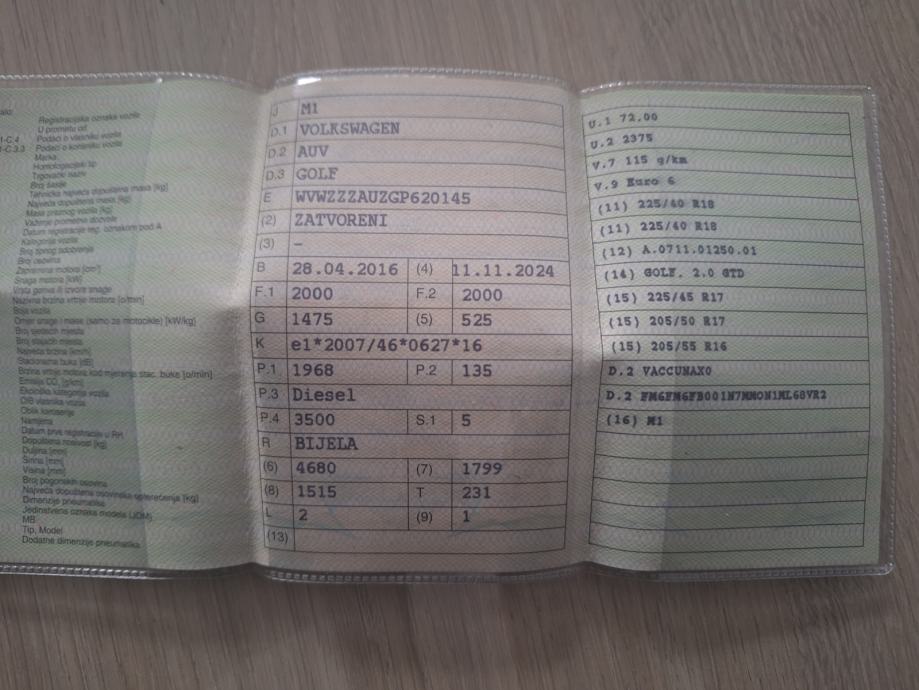 Registracijska oznaka vozila
U prometu od
Podaci o vlasniku vozila
Podaci o korisniku vozila
Marka
Homologacijski tip
Trgovački naziv
Broj šasije
Tehnička najveća dopuštena masa [kg]
Najveća dopuštena masa [kg]
Masa praznog vozila [kg]
Važenje prometne dozvole
Datum registracije reg. oznakom pod A
Kategorija vozila
Broj tipnog odobrenja
Broj osovina
Zapremina motora [cm³]
Snaga motora [kW]
Vrsta goriva ili izvora snage
Nazivna brzina vrtnje motora [o/min]
Boja vozila
Omjer snage i mase (samo za motocikle) [kW/kg]
Broj sjedećih mjesta
Broj stajaćih mjesta
Najveća brzina [km/h]
Stacionarna buka [dB]
Brzina vrtnje motora kod mjerenja stac. buke [o/min]
Emisija CO₂ [g/km]
Ekološka kategorija vozila
OIB vlasnika vozila
Oblik karoserije
Namjena
Datum prve registracije u RH
Dopuštena nosivost [kg]
Duljina [mm]
Širina [mm]
Visina [mm]
Broj pogonskih osovina
Najveća dopuštena osovinska opterećenja [kg]
Dimenzije pneumatika
Jedinstvena oznaka modela (JOM)
MB
Tip, Model
Dodatne dimenzije pneumatika
J M1
D.1 VOLKSWAGEN
D.2 AUV
D.3 GOLF
E WVWZZZAUZGP620145
(2) ZATVORENI
(3) –
B 28.04.2016 (4) 11.11.2024
F.1 2000 F.2 2000
G 1475 (5) 525
K e1*2007/46*0627*16
P.1 1968 P.2 135
P.3 Diesel
P.4 3500 S.1 5
R BIJELA
(6) 4680 (7) 1799
(8) 1515 T 231
L 2 (9) 1
(13)
U.1 72.00
U.2 2375
V.7 115 g/km
V.9 Euro 6
(11) 225/40 R18
(11) 225/40 R18
(12) A.0711.01250.01
(14) GOLF. 2.0 GTD
(15) 225/45 R17
(15) 205/50 R17
(15) 205/55 R16
D.2 VACCUNAX0
D.2 FM6FM6FB001N7MMON1ML68VR2
(16) M1